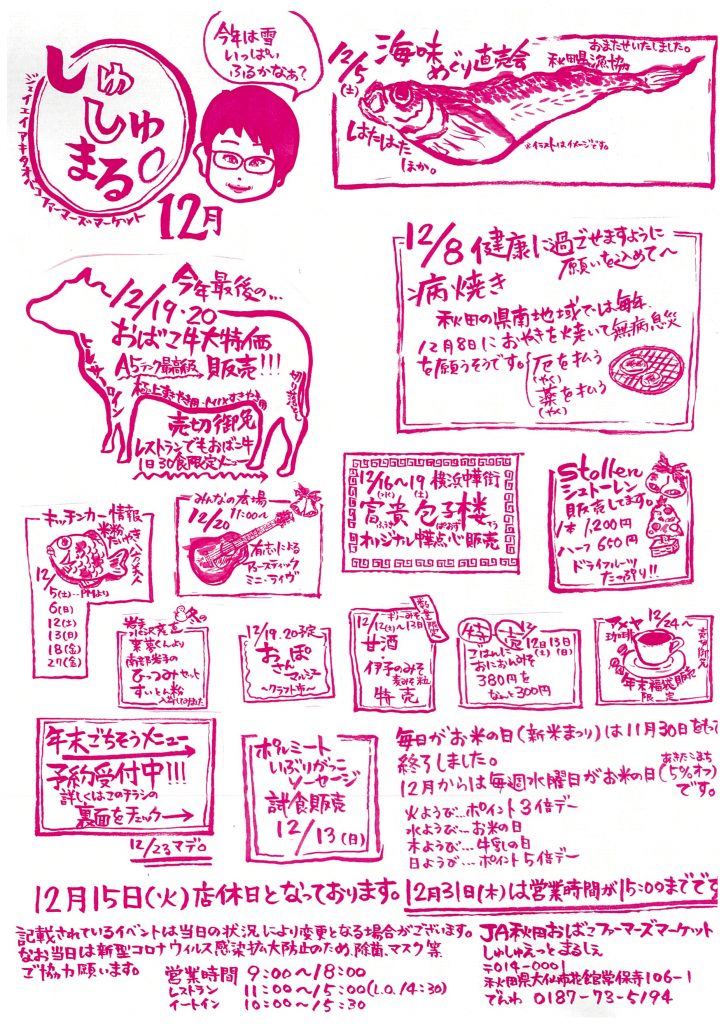 しゅしゅまる。
ジェイエイアキタオバコファーマーズマーケット
12月
今年は雪
いっぱい
ふるかなぁ?
12/5(土)
海味めぐり直売会
おまたせいたしました。
秋田県漁協
はたはた
ほか。
※イラストはイメージです。
12/8 健康に過ごせますように
願いを込めて〜
病焼き
秋田の県南地域では毎年
12月8日におやきを焼いて無病息災
を願うそうです。
厄を払う
(やく)
薬を払う
(やく)
今年最後の…
12/19・20
おばこ牛大特価
A5ランク最高級 販売!!!
ヒレ、サーロイン
切り落とし
売切御免
レストランでもおばこ牛
1日30食限定メニュー
キッチンカー情報
米粉
たいやき
12/5(土)…PMより
6(日)
12(土)
13(日)
18(金)
27(金)
みんなの広場
12/20
11:00〜
有志による
アコースティック
ミニ・ライヴ
12/16〜19 横浜中華街
(水) (土)
富貴包子楼
オリジナル中華点心販売
Stollen
シュトーレン
販売します。
1本 1,200円
ハーフ 650円
ドライフルーツ
たっぷり!!
冬の
岩手
南部岩手の
ひっつみセット
すいとん粉
12/19.20予定
おっぽ
さん
マルシェ
〜クラフト市〜
数量限定
12/12(土)〜13(日)
甘酒
伊子のみそ
特売
特売
12日13日
(土)(日)
ごはんに
おにおんみそ
380円を
なんと300円
アメヤ
珈琲
12/24〜
売切御免
年末福袋販売
限定
年末ごちそうメニュー
予約受付中!!!
詳しくはこのチラシの
裏面をチェック→
12/23マデ。
ポルミート
いぶりがっこ
ソーセージ
試食販売
12/13(日)
毎日がお米の日(新米まつり)は11月30日をもって
終了しました。
12月からは毎週水曜日がお米の日(あきたこまち5%オフ)
です。
火ようび…ポイント3倍デー
水ようび…お米の日
木ようび…牛乳の日
日ようび…ポイント5倍デー
12月15日(火)店休日となっております。12月31日(木)は営業時間が15:00までです
記載されているイベントは当日の状況により変更となる場合がございます。
なお当日は新型コロナウィルス感染拡大防止のため、除菌、マスク等
ご協力願います。
営業時間 9:00〜18:00
レストラン 11:00〜15:00(L.O.14:30)
イートイン 10:00〜15:30
JA秋田おばこファーマーズマーケット
しゅしゅえっとまるしぇ
〒014-0001
秋田県大仙市花館常保寺106-1
でんわ 0187-73-5194